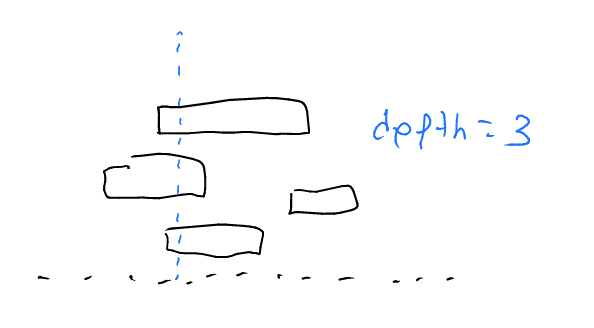 depth = 3